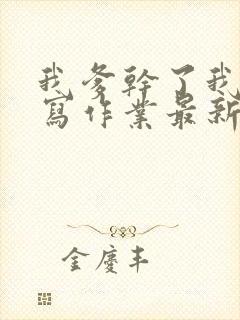 我爹幹了我
寫作業最新
金慶丰